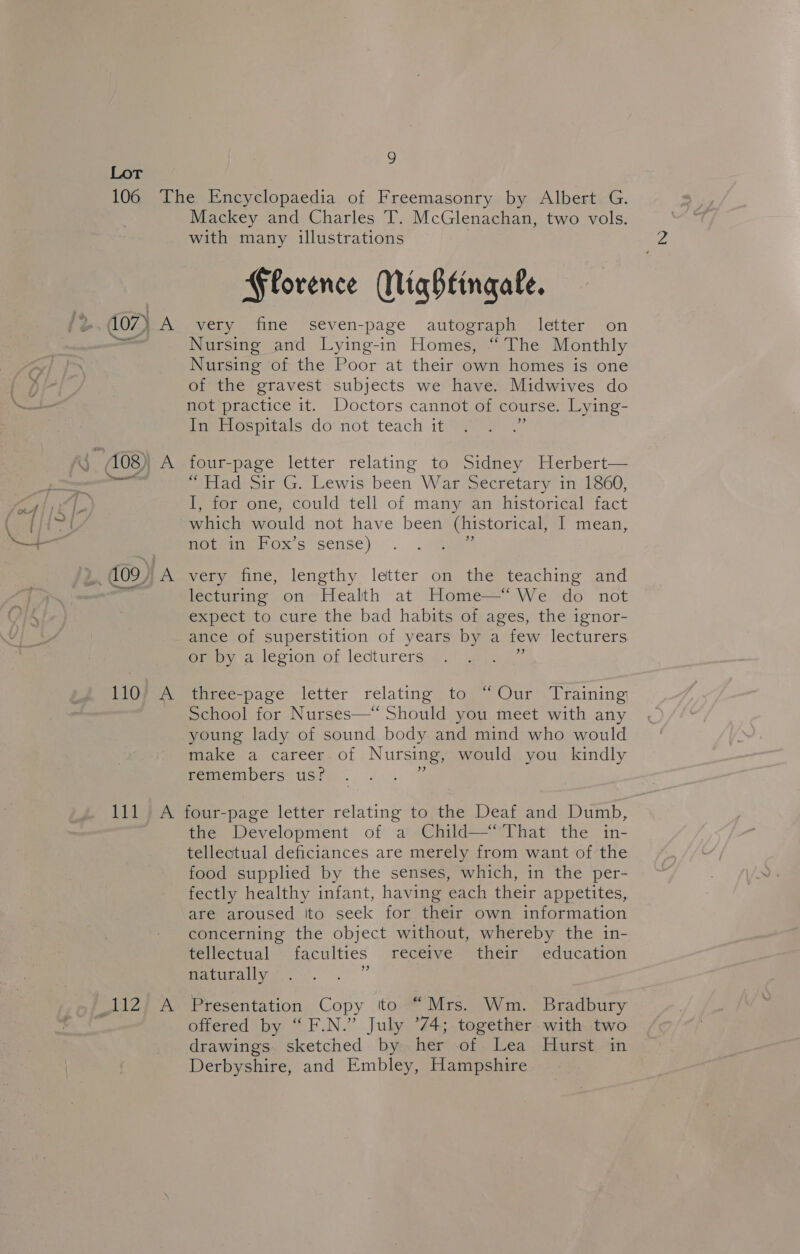 9
Lot
106 The Encyclopaedia of Freemasonry by Albert G.
Mackey and Charles T. McGlenachan, two vols.
with many illustrations
Florence Nightingale.
107 A very fine seven-page autograph letter on
Nursing and Lying-in Homes, “The Monthly
Nursing of the Poor at their own homes is one
of the gravest subjects we have. Midwives do
not practice it. Doctors cannot of course. Lying-
In Hospitals do not teach it . . .”
108 A four-page letter relating to Sidney Herbert—
“Had Sir G. Lewis been War Secretary in 1860,
I, for one, could tell of many an historical fact
which would not have been (historical, I mean,
not in Fox’s sense) . . . .”
109 A very fine, lengthy letter on the teaching and
lecturing on Health at Home—“We do not
expect to cure the bad habits of ages, the ignor-
ance of superstition of years by a few lecturers
or by a legion of lecturers . . . .”
110 A three-page letter relating to “Our Training
School for Nurses—“Should you meet with any
young lady of sound body and mind who would
make a career of Nursing, would you kindly
remembers us? . . . .”
111 A four-page letter relating to the Deaf and Dumb,
the Development of a Child—“That the in-
tellectual deficiances are merely from want of the
food supplied by the senses, which, in the per-
fectly healthy infant, having each their appetites,
are aroused to seek for their own information
concerning the object without, whereby the in-
tellectual faculties receive their education
naturally . . . .”
112 A Presentation Copy to “Mrs. Wm. Bradbury
offered by “F.N.” July ’74; together with two
drawings sketched by her of Lea Hurst in
Derbyshire, and Embley, Hampshire